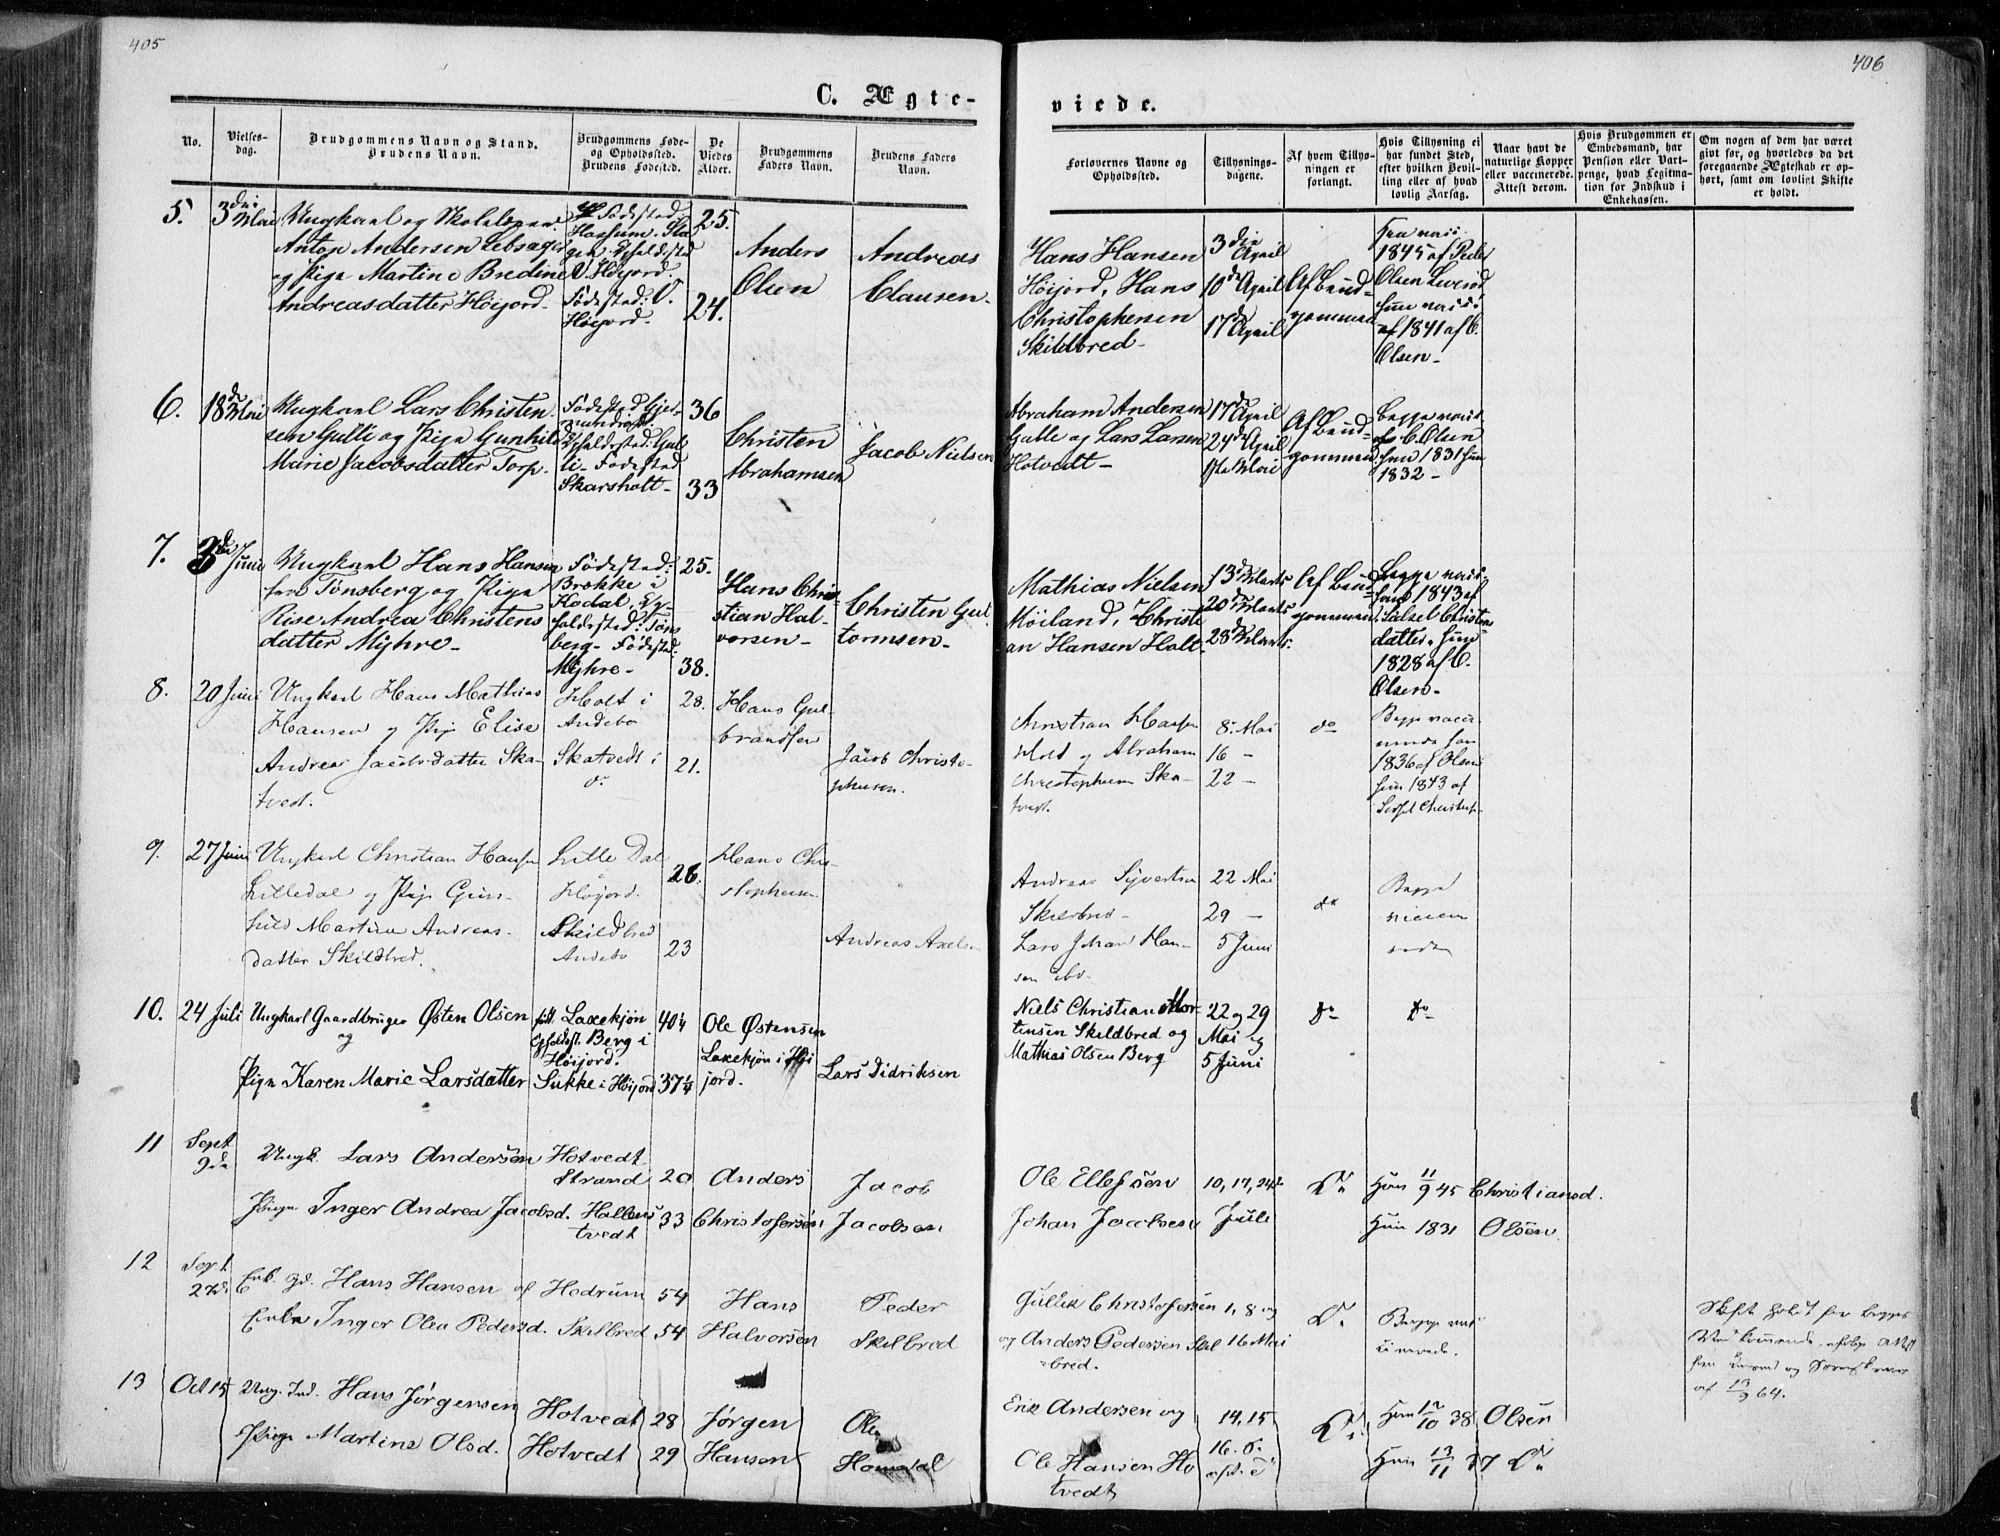 405
406
C. Ægte-
viede.
No.
Vielses-
dag.
Brudgommens Navn og Stand.
Brudens Navn.
Brudgommens Føde-
og Opholdssted.
Brudens Fødested.
De
Viedes
Alder.
Brudgommens
Faders Navn.
Brudens Faders
Navn.
Forlovernes Navne og
Opholdssted.
Tillysnings-
dagene.
Af hvem Tillys-
ningen er
forlangt.
Hvis Tillysning ei
har fundet Sted,
efter hvilken Bevil-
ling eller af hvad
lovlig Aarsag.
Naar havt de
naturlige Kopper
eller vaccinerede.
Attest derom.
Hvis Brudgommen er
Embedsmand, har
Pension eller Vart-
penge, hvad Legitma-
tion for Indskud i
Enkekassen.
Om nogen af dem har været
givt før, og hvorledes da det
foregaaende Ægteskab er op-
hørt, samt om lovligt Skifte
er holdt.
5.
3die Mai
Ungkarl og
Anton Andersen
og Pige Martine Bredine
Andreasdatter Höijord.
Födested:
Hassum.
Höijord.
Födested:
Höijord.
25.
24.
Anders
Olsen
Andreas
Clausen
Hans Hansen
Höijord, Hans
Christophersen
Skildbred
3die April
10de April
17de April
Af Brud-
gommen
1845 af Peder
Olsen
1841 af C.
Olsen
6.
18de Mai
Ungkarl Lars Christen-
sen Gulli og Pige Gunhild
Marie Jacobsdatter Torp.
Födested
Opholdssted: Gul-
li. Födested
Skarsholt
36
33
Christen
Abrahamsen
Jacob Nielsen
Abraham Andersen
Gulle og Lars Larsen
Hotvedt
17de April
24de April
1ste Mai
Af Brud-
gommen
Begge vacc.
af C. Olsen
han 1831 hun
1832
7.
3die Juni
Ungkarl Hans Hansen
fra Tönsberg og Pige
Rise Andrea Christens
datter Myhre
Födested:
Brekke i
Kodal, Op-
holdssted: Töns
berg Födested:
Myhre
25.
38.
Hans Chri-
stian Hal-
vorsen
Christen Gul
tormsen
Mathias Nielsen
Möiland, Christi
an Hansen Holt.
13de Marts
20de Marts
28de Marts.
Af Brud-
gommen.
Begge vacc.
han 1843 af
Sidsel Christens
datter, hun
1828 af C.
Olsen
8.
20 Juni
Ungkarl Hans Mathias
Hansen og Pige Elise
Andrea Jacobsdatter Ska-
tvedt.
Holt i
Andebo
Skatvedt i
do
28.
21.
Hans Gul-
brandsen
Jacob Christo-
phersen.
Christian Hansen
Hold og Abraham
Christophersen Ska-
tvedt.
8. Mai
16 -
22 -
do
Begge vacci
nerede han
1836 af Olsen
hun 1843 af
Sidsel Christoph.
9.
27 Juni
Ungkarl Christian Hansen
Lilledal og Pige Gun-
hild Martine Andreas-
datter Skildbred.
Lille Dal
Höijord.
Skildbred
Andebo
26.
23
Hans Chri-
stophersen
Andreas Axelsen
Andreas Syvertsen
Skildbred
Lars Johan Han-
sen ibd.
22 Mai
29 -
5 Juni
do
Begge
vaccine
rede
10.
24 Juli
Ungkarl Gaardbruger Østen Olsen
og
Pige Karen Marie Larsdatter
født Laxekjön
Opholdst. Berg i
Höijord.
Sukke i Höijord
40¼
37¼
Ole Østensen
Laxekjön i Höi
jord.
Lars Didriksen
Niels Christian Mor-
tensen Skildbred og
Mathias Olsen Berg
22 og 29
Mai og
5 Juni
do
do
11
Sept
9de
Ungk. Lars Andersen
Pige Inger Andrea Jacobsd.
Hotvedt
Strand
Hallens
tvedt
20
33
Anders
Christofersen
Jacob
Jacobsen
Ole Ellefsen
Johan Jacobsen
10, 17, 24de
Juli
Do
Han 11/9 45
Christiansd.
Hun 1831
Olsen
12
Sept
27de
Enk. Gd. Hans Hansen af
Enke Inger Olea Pedersd.
Hedrum
Skilbred
54
54
Hans
Halvorsen
Peder
Skilbred
Gullik Christofersen
og Anders Pedersen Skil
bred.
1, 8 og
16 Mai
Do
Begge vac
cinerede.
Skifte holdt for begges
Vedkommende, ifølge Attest
fra Lensmd og Sorenskriver
af 13/9 64.
13
Oct 15
Ung. Ind. Hans Jörgensen
Pige Martine Olsd.
Hotvedt
Hotvedt
28
29
Jörgen
Hansen
Ole
Homedal
Erik Andersen og
Ole Hansen Ho
tvedt
14, 15
Do
Han 12/10 38
Olsen
Hun 13/11 37
Do